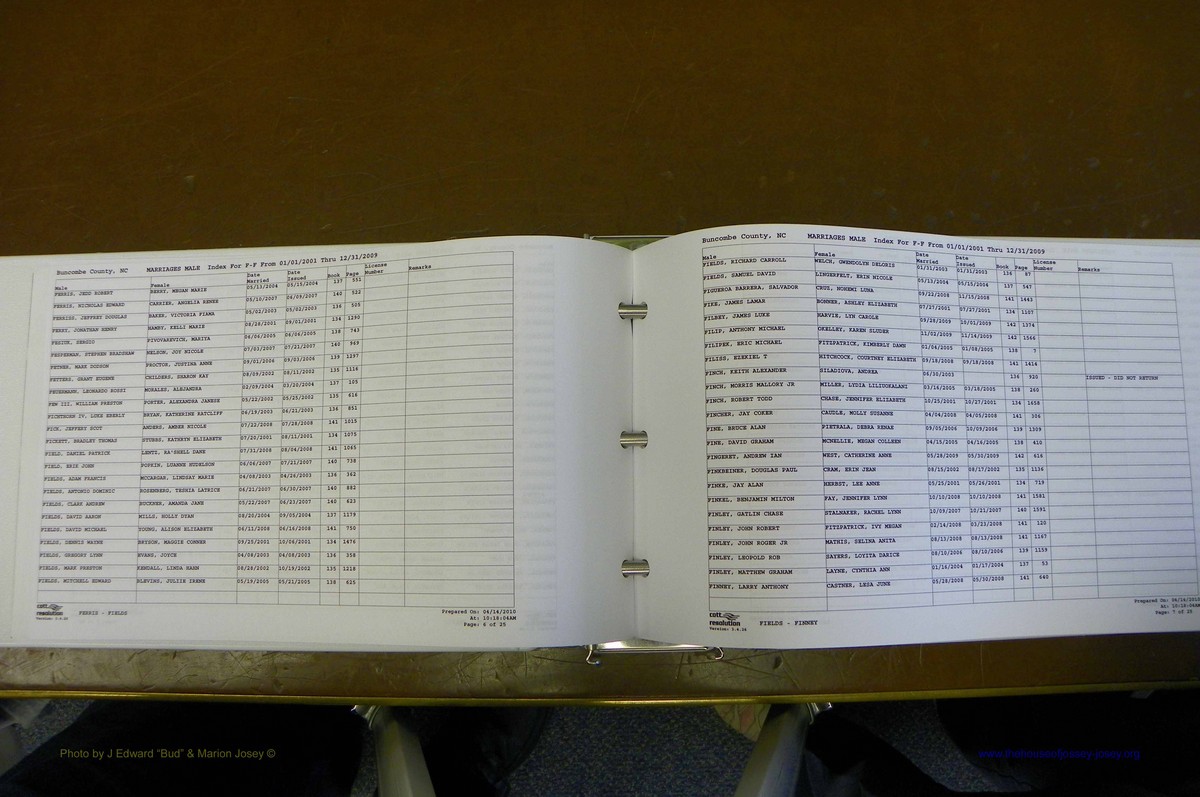 Buncombe County, NC MARRIAGES MALE Index For F-F From 01/01/2001 Thru 12/31/2009
Male Female Date Married Date Issued Book Page License Number Remarks
FERRIS, JEDD ROBERT BERRY, MEGAN MARIE 05/13/2004 05/15/2004 137 551
FERRIS, NICHOLAS EDWARD CARRIER, ANGELIA RENEE 05/10/2007 06/09/2007 140 522
FERRISS, JEFFREY DOUGLAS BAKER, VICTORIA FIAMA 05/02/2003 05/02/2003 136 505
FERRY, JONATHAN HENRY HAMBY, KELLI MARIE 08/28/2001 09/01/2001 134 1290
SERGIO PIVOVAREVICH, MARIYA 06/06/2005 06/06/2005 138 743
FESPERMAN, STEPHEN BRADSHAW NELSON, JOY NICOLE 07/03/2007 07/21/2007 140 969
FETNER, MARK DODSON PROCTOR, JUSTINA ANNE 09/01/2006 09/03/2006 139 1297
FETTERS, GRANT EUGENE CHILDERS, SHARON KAY 08/09/2002 08/11/2002 135 1116
LEONARDO ROSSI MORALES, ALEJANDRA 02/09/2004 03/20/2004 137 105
FEW III, WILLIAM PRESTON PORTER, ALEXANDRA JANESE 05/22/2002 05/25/2002 135 616
FICHTHORN IV, LUKE EBERLY BRYAN, KATHERINE RATCLIFF 06/19/2003 06/21/2003 136 851
FICK, JEFFERY SCOT ANDERS, AMBER NICOLE 07/22/2008 07/28/2008 141 1015
FICKETT, BRADLEY THOMAS STUBBS, KATHRYN ELIZABETH 07/20/2001 08/11/2001 134 1075
FIELD, DANIEL PATRICK LENTI, RA'SHELL DANE 07/31/2008 08/04/2008 141 1065
FIELD, ERIK JOHN POPKIN, LUANNE HUDELSON 06/06/2007 07/21/2007 140 738
FIELDS, ADAM FRANCIS MCCARGAN, LINDSAY MARIE 04/08/2003 04/26/2003 136 362
FIELDS, ANTONIO DOMINIC ROSENBERG, YESHIA LATRICE 06/21/2007 06/30/2007 140 882
FIELDS, CLARK ANDREW RUCKER, AMANDA JANE 05/22/2007 06/23/2007 140 623
FIELDS, DAVID AARON MILLS, HOLLY DYAN 08/20/2004 09/05/2004 137 1179
FIELDS, DAVID MICHAEL YOUNG, ALISON ELIZABETH 06/11/2008 06/16/2008 141 750
FIELDS, DENNIS WAYNE BRYSON, MAGGIE CONNER 09/25/2001 10/06/2001 134 1476
FIELDS, GREGORY LYNN EVANS, JOYCE 04/08/2003 04/08/2003 136 358
FIELDS, MARK PRESTON KENDALL, LINDA HAHN 06/28/2002 10/19/2002 135 1218
FIELDS, MITCHELL EDWARD BLEVINS, JULIIE IRENE 05/19/2005 05/21/2005 138 625
cott resolution
FERRIS - FIELDS
Prepared On: 04/14/2010
At: 10:18:04AM
Page: 6 of 25
Buncombe County, NC MARRIAGES MALE Index For F-F From 01/01/2001 Thru 12/31/2009
Male Female Date Married Date Issued Book Page License Number Remarks
FIELDS, RICHARD CARROLL WELCH, GWENDOLYN DELORIS 01/31/2003 01/31/2003 136 87
FIELDS, SAMUEL DAVID LINGERFELT, ERIN NICOLE 05/13/2004 05/15/2004 137 547
FIGUEROA BARRERA, SALVADOR CRUZ, NOHEMI LUNA 09/22/2008 11/15/2008 141 1443
FIKE, JAMES LAMAR BONNER, ASHLEY ELIZABETH 07/27/2001 07/27/2001 134 1107
FILBEY, JAMES LUKE HARVIE, LYN CAROLE 09/28/2009 10/01/2009 142 1374
FILIP, ANTHONY MICHAEL OKELLEY, KAREN SLUDER 11/02/2009 11/14/2009 142 1566
FILIPEK, ERIC MICHAEL FITZPATRICK, KIMBERLY DAWN 01/06/2005 01/08/2005 138 7
FILISS, EZEKIEL T HITCHCOCK, COURTNEY ELIZABETH 09/18/2008 09/18/2008 141 1414
FINCH, KEITH ALEXANDER SILADIOVA, ANDREA 06/30/2003 136 920 ISSUED - DID NOT RETURN
FINCH, NORRIS MALLORY JR MILLER, LYDIA LILIUOKALANI 03/16/2005 03/18/2005 138 260
FINCH, ROBERT TODD CHASE, JENNIFER ELIZABETH 10/25/2001 10/27/2001 134 1658
FINCHER, JAY COKER CAUDLE, MOLLY SUSANNE 04/04/2008 04/05/2008 141 306
FINE, BRUCE ALAN PIETRALA, DEBRA RENAE 09/05/2006 10/09/2006 139 1309
FINE, DAVID GRAHAM MCNELLIE, MEGAN COLLEEN 04/15/2005 04/16/2005 138 410
FINGERET, ANDREW IAN WEST, CATHERINE ANNE 05/28/2009 05/30/2009 142 616
FINKBEINER, DOUGLAS PAUL CRAM, ERIN JEAN 08/15/2002 08/17/2002 135 1136
FINKE, JAY ALAN HERBST, LEE ANNE 05/25/2001 05/26/2001 134 719
FINKEL, BENJAMIN MILTON FAY, JENNIFER LYNN 10/10/2008 10/10/2008 141 1581
FINLEY, GATLIN CHASE STALNAKER, RACHEL LYNN 10/09/2007 10/21/2007 140 1591
FINLEY, JOHN ROBERT FITZPATRICK, IVY MEGAN 02/14/2008 03/23/2008 141 120
FINLEY, JOHN ROGER JR MATHIS, SELINA ANITA 08/13/2008 08/13/2008 141 1167
FINLEY, LEOPOLD ROB SAYERS, LOYITA DARICE 08/10/2006 08/10/2006 139 1159
FINLEY, MATTHEW GRAHAM LAYNE, CYNTHIA ANN 01/16/2004 01/17/2004 137 53
FINNEY, LARRY ANTHONY CASTNER, LESA JUNE 05/28/2008 05/30/2008 141 640
cott resolution
FIELDS - FINNEY
Prepared On: 04/14/2010
At: 10:18:04AM
Page: 7 of 25
Photo by J Edward "Bud" & Marion Josey ©
www.thehouseofjossey-josey.org